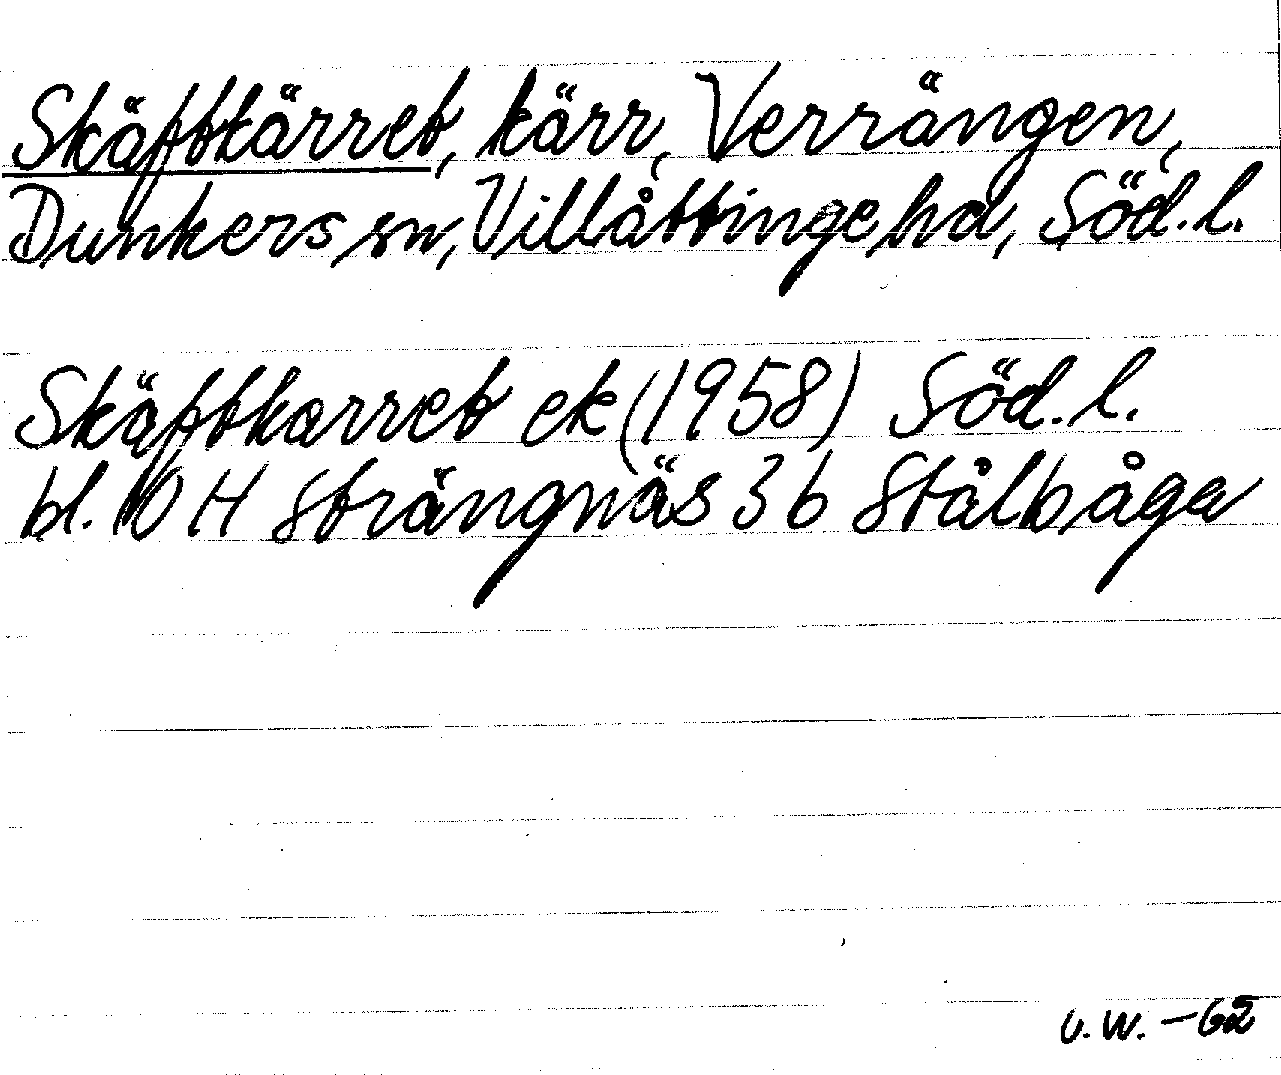 Skäftkärret, kärr, Verrängen,
Dunkers sn, Villåttinge hd, Söd. l.
Skäftkarret ek (1958) Söd. l.
bl. 10 H Strängnäs 3 b Stålbåga
U. W. - 62